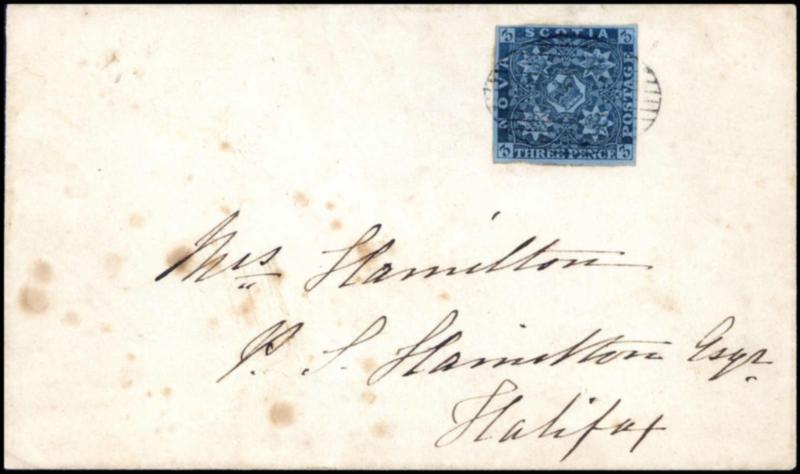 SCOTIA
NOVA
POSTAGE
THREE PENCE
Mrs Hamilton
P. S. Hamilton Esqr.
Halifax